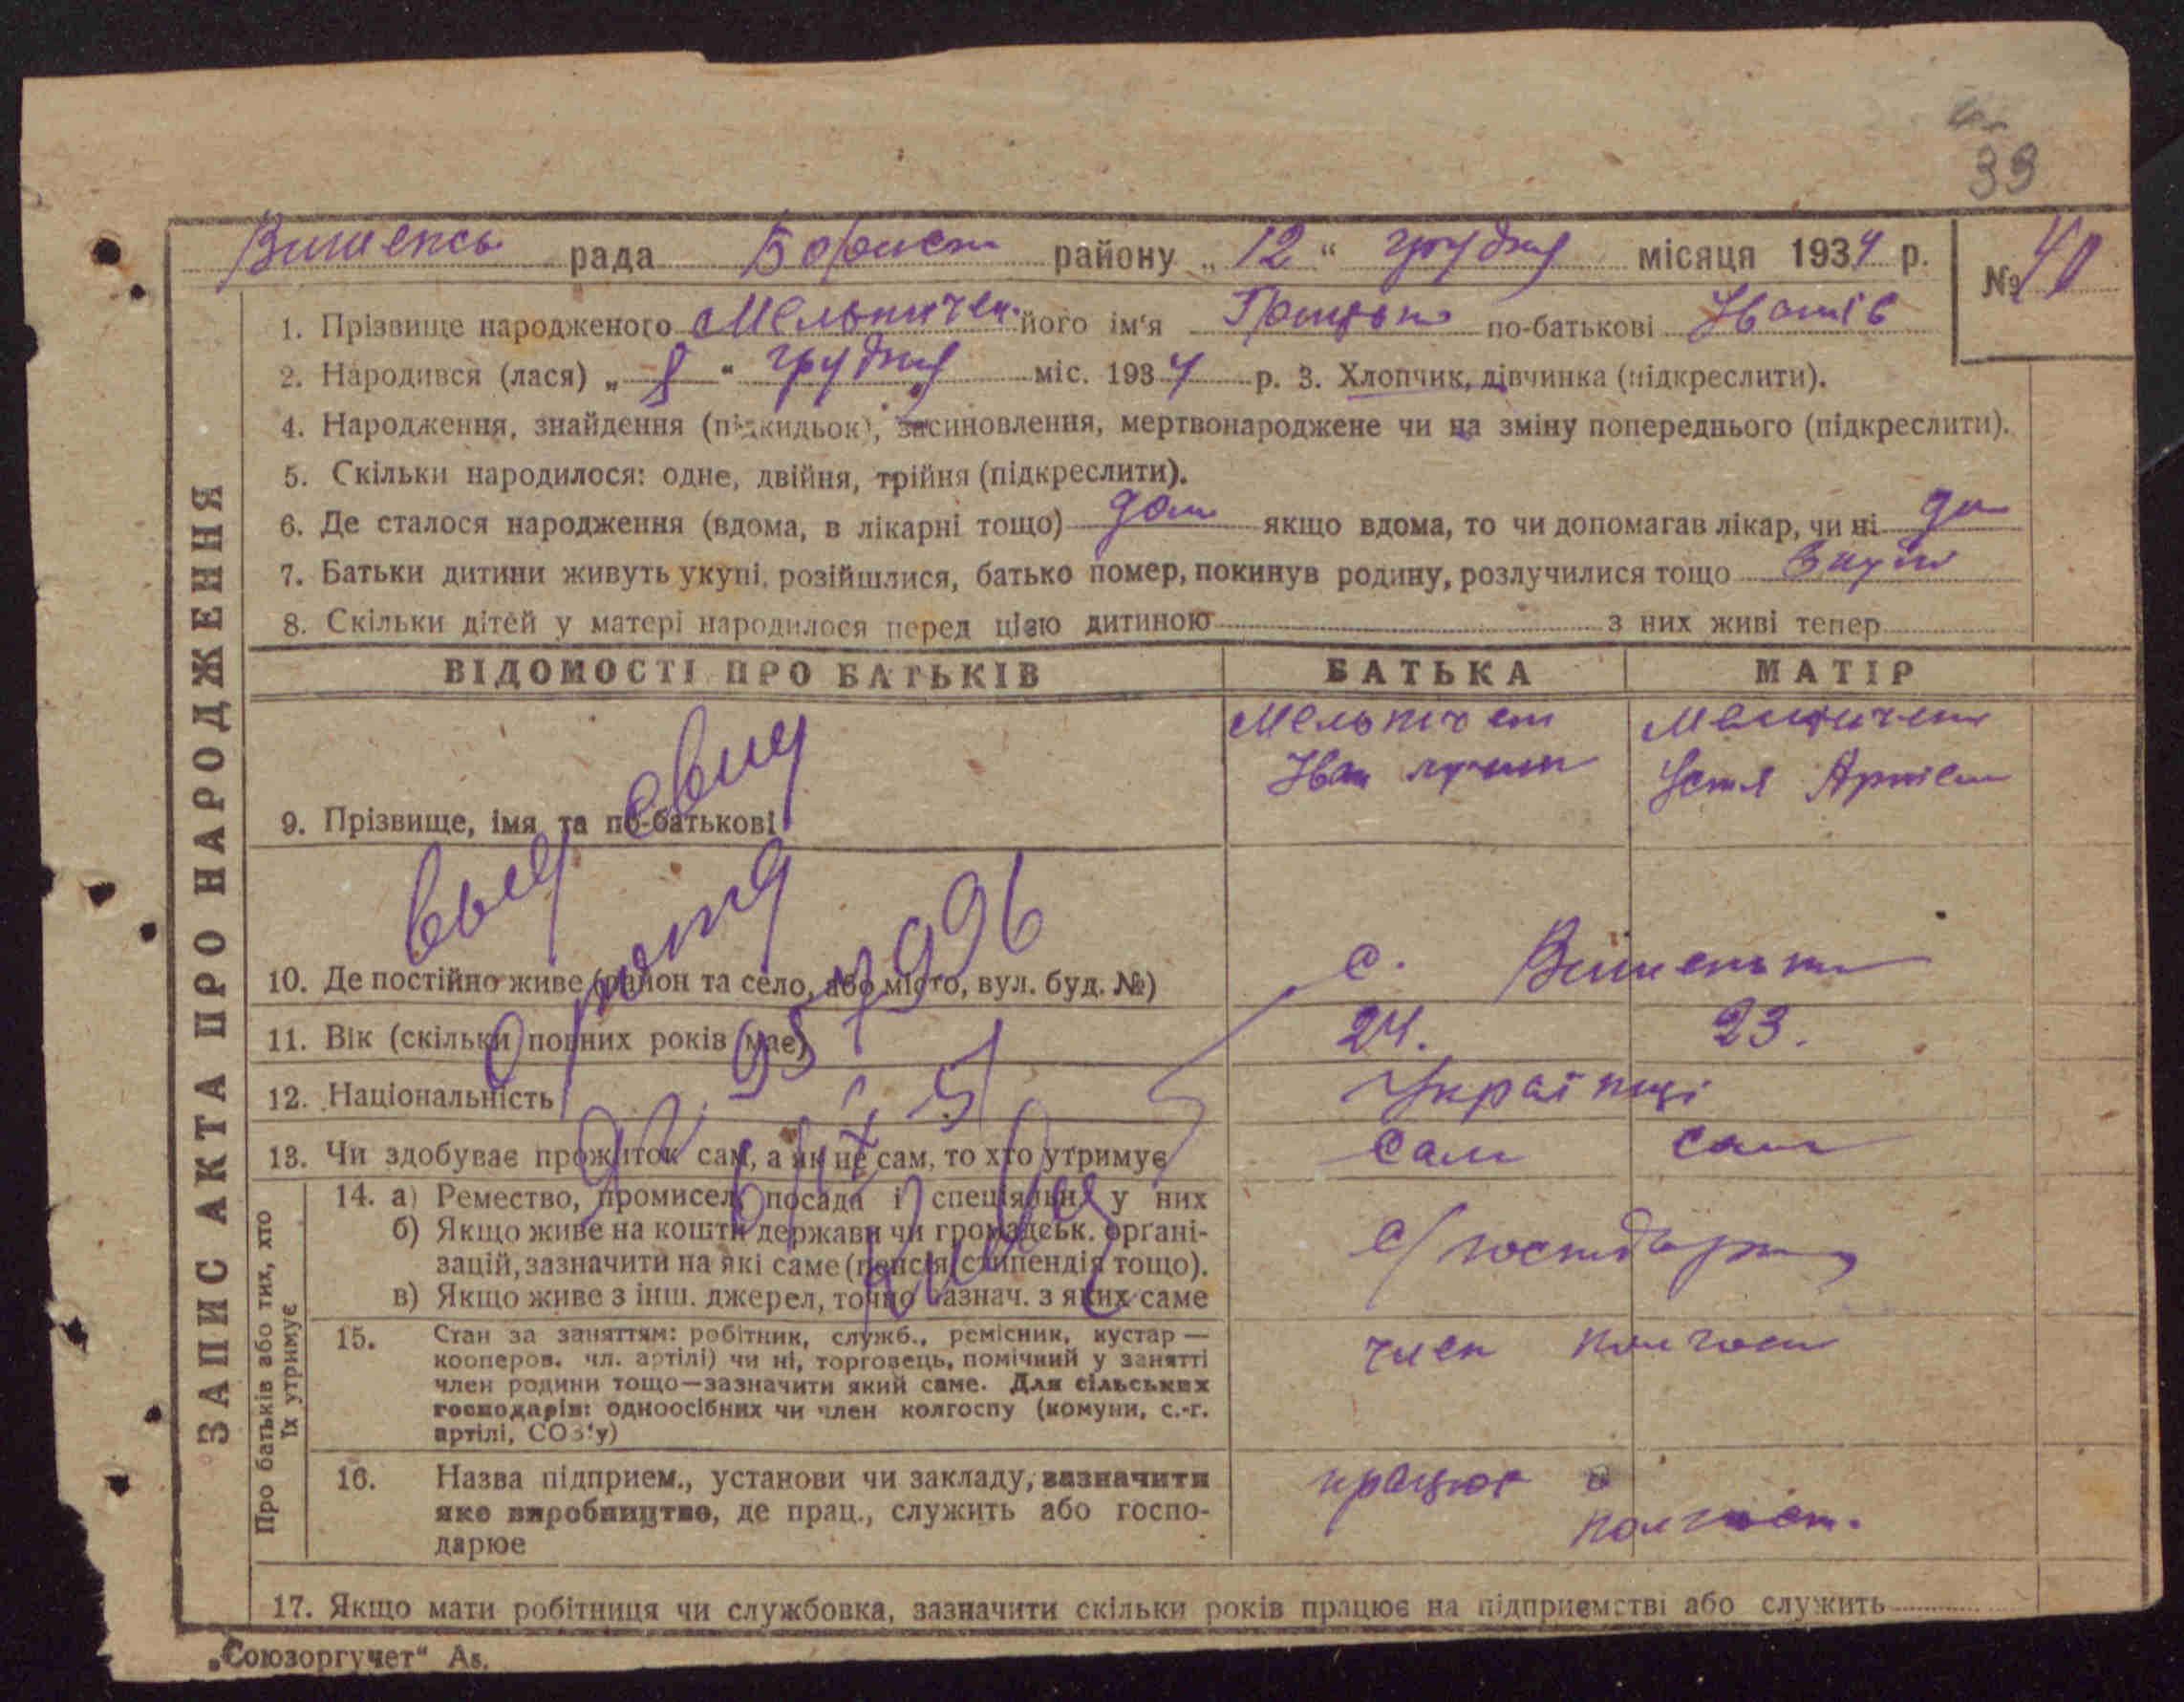 39
Вишенсь рада Борисп району „12“ грудня місяця 1934 р. № 40
ЗАПИС АКТА ПРО НАРОДЖЕННЯ
1. Прізвище народженого Мельничен. його ім'я Грицько по-батькові Іванів
2. Народився (лася) „8“ грудня міс. 1934 р. 3. Хлопчик, дівчинка (підкреслити).
4. Народження, знайдення (підкидьок), засиновлення, мертвонароджене чи на зміну попереднього (підкреслити).
5. Скільки народилося: одне, двійня, трійня (підкреслити).
6. Де сталося народження (вдома, в лікарні тощо) дом якщо вдома, то чи допомагав лікар, чи ні
7. Батьки дитини живуть укупі, розійшлися, батько помер, покинув родину, розлучилися тощо вкупі
8. Скільки дітей у матері народилося перед цією дитиною з них живі тепер
ВІДОМОСТІ ПРО БАТЬКІВ БАТЬКА МАТІР
Мельничен Мельничен
Іван Устя
9. Прізвище, імя та по-батькові
10. Де постійно живе (район та село, або місто, вул. буд. №) с. Вишеньки
11. Вік (скільки повних років має) 24. 23.
12. Національність Українці
13. Чи здобуває прожиток сам, а як не сам, то хто утримує сам сам
Про батьків або тих, хто їх утримує
14. а) Ремество, промисел, посада і спеціяльн. у них
б) Якщо живе на кошти держави чи громадськ. органі-
зацій, зазначити на які саме (пенсія, стипендія тощо).
в) Якщо живе з інш. джерел, точно зазнач. з яких саме
15. Стан за заняттям: робітник, служб., ремісник, кустар —
кооперов. чл. артілі) чи ні, торговець, помічний у занятті
член родини тощо—зазначити який саме. Для сільських
господарів: одноосібник чи член колгоспу (комуни, с.-г.
артілі, СОЗ'у)
член колгосп
16. Назва підприєм., установи чи закладу, зазначити
яке виробництво, де прац., служить або госпо-
дарює
працює в
колгосп.
17. Якщо мати робітниця чи службовка, зазначити скільки років працює на підприємстві або служить
„Союзоргучет“ А5.